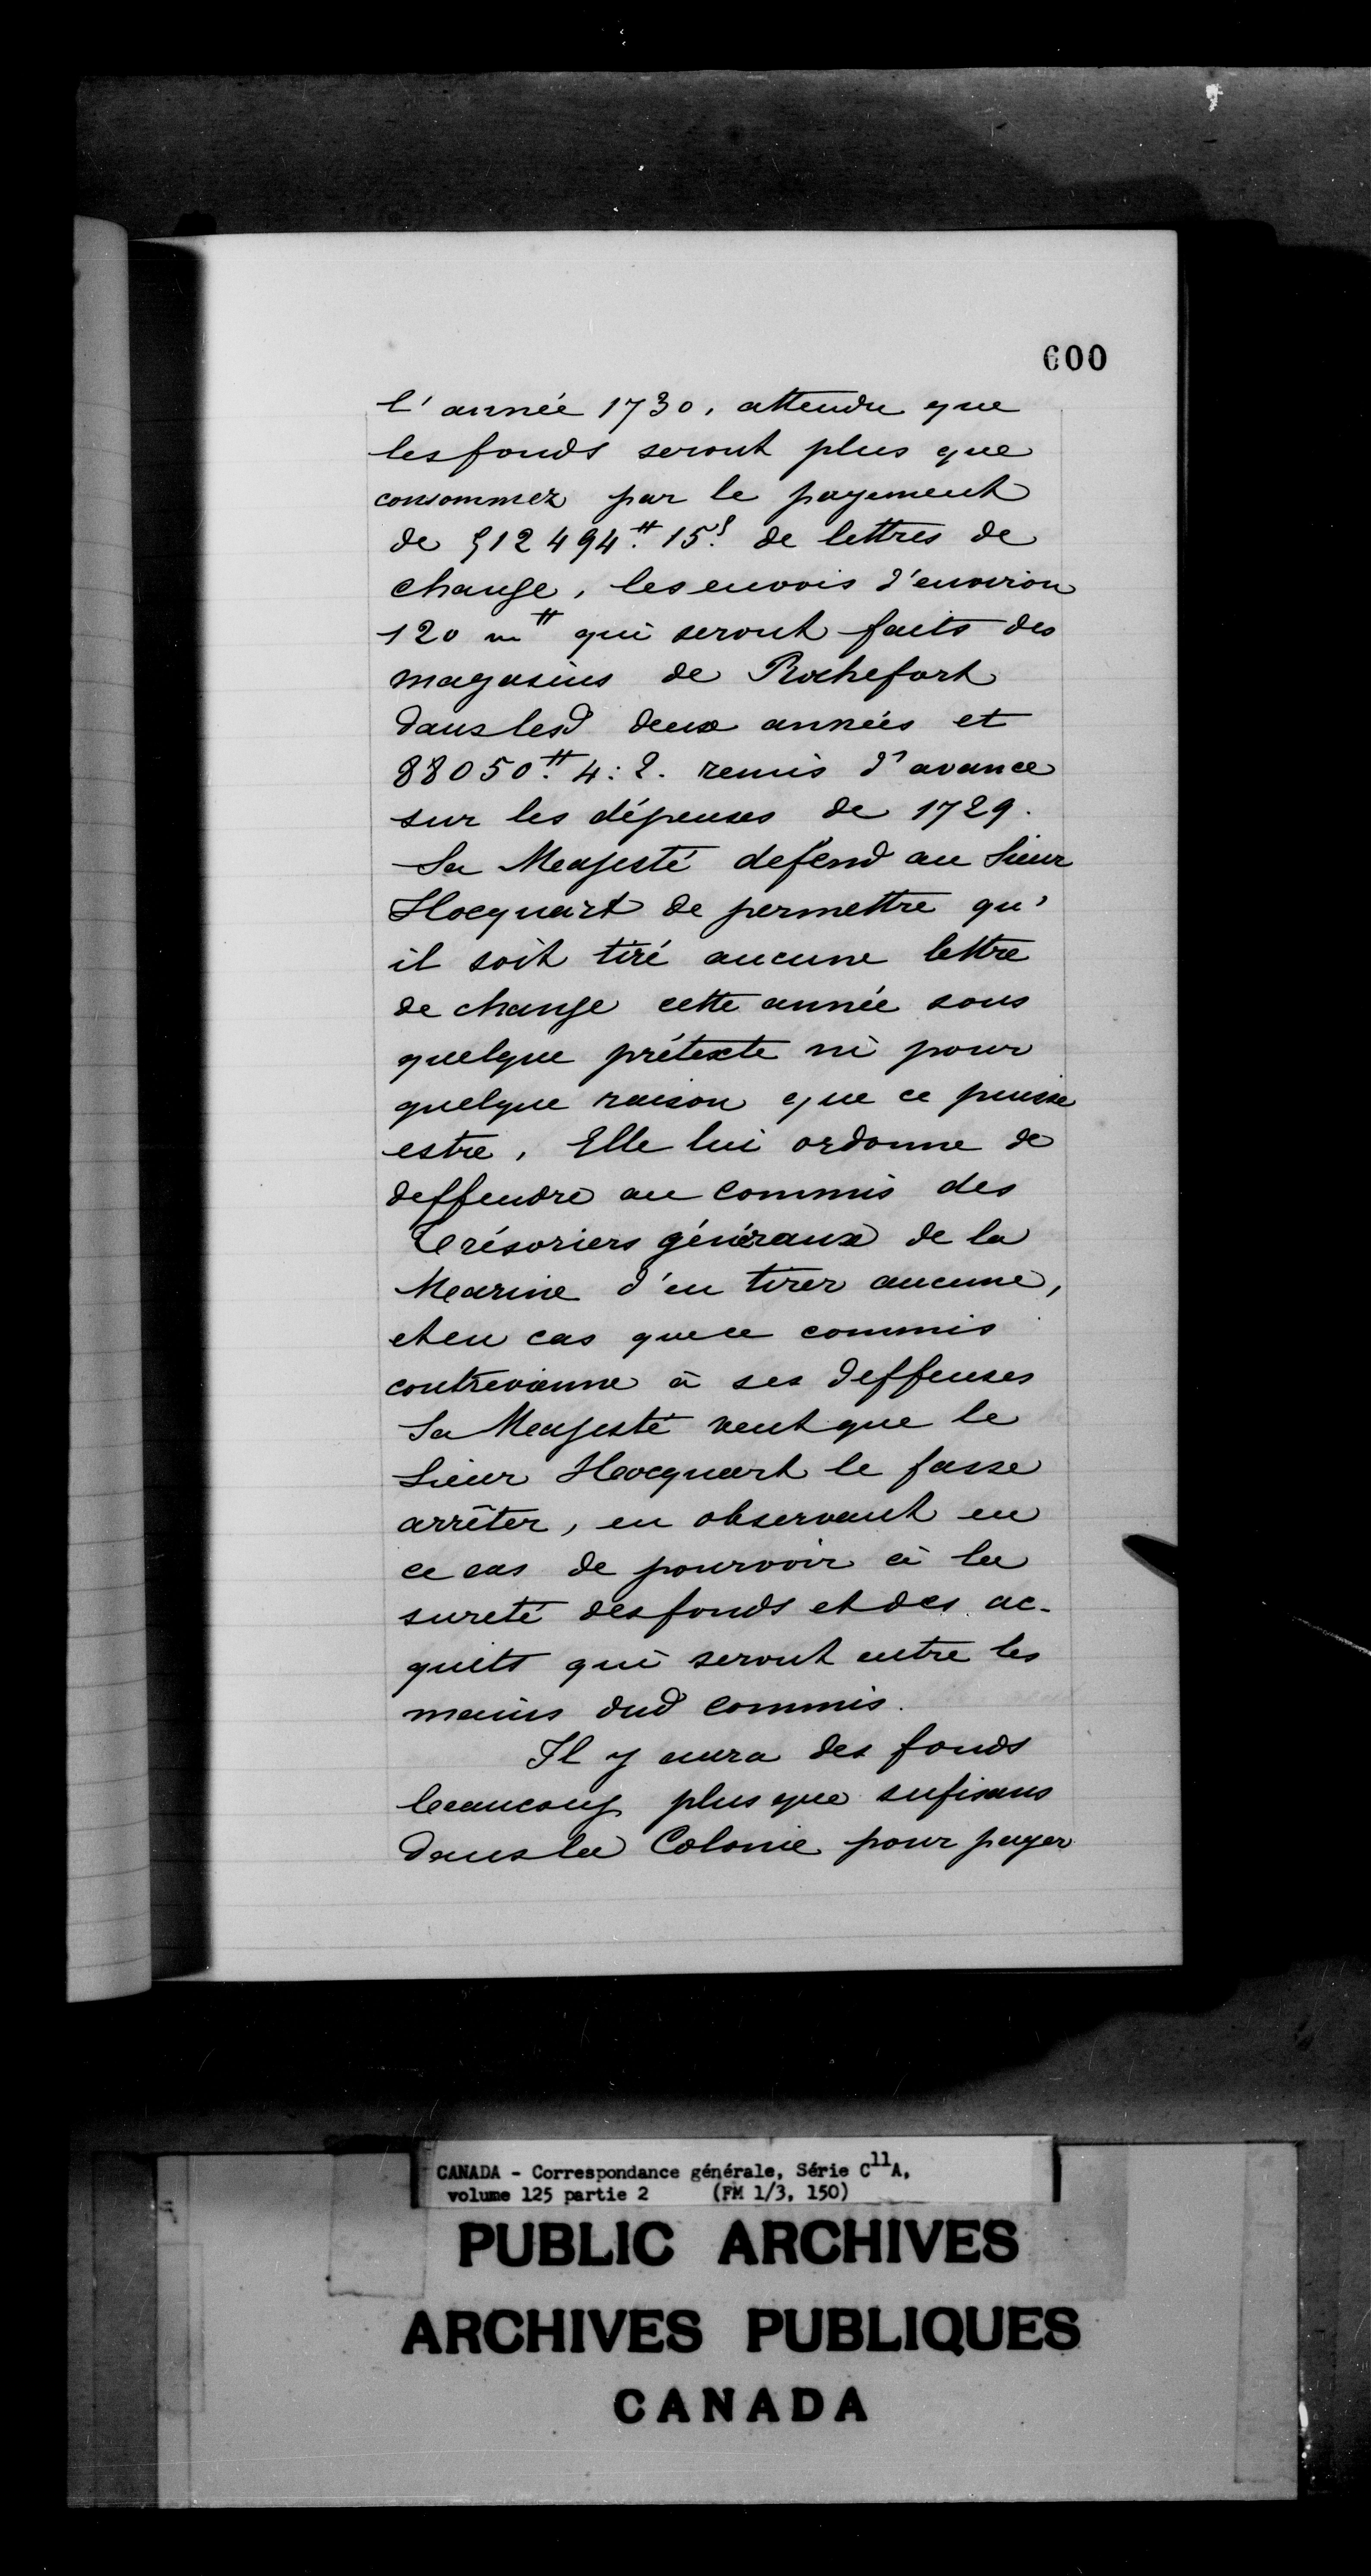 600
l'année 1730, attendu que
les fonds seront plus que
consommez par le payement
de 512494.ᵗᵗ 15.ˢ de lettres de
change, les envois d'environ
120 mᵗᵗ qui seront faits des
magasins de Rochefort
dans lesd deux années et
88050.ᵗᵗ 4:2. remis d'avance
sur les dépenses de 1729.
Sa Majesté defend au Sieur
Hocquart de permettre qu'
il soit tiré aucune lettre
de change cette année sous
quelque prétexte ni pour
quelque raison que ce puisse
estre, Elle lui ordonne de
deffendre au commis des
Trésoriers généraux de la
Marine d'en tirer aucune,
et en cas que ce commis
contrevienne à ses deffenses
Sa Majesté veut que le
Sieur Hocquart le fasse
arrêter, en observant en
ce cas de pourvoir à la
sureté des fonds et des ac-
quits qui seront entre les
mains dud commis.
Il y aura des fonds
beaucoup plus que sufisans
dans la Colonie pour payer
CANADA - Correspondance générale, Série C¹¹A,
volume 125 partie 2 (FM 1/3, 150)
PUBLIC ARCHIVES
ARCHIVES PUBLIQUES
CANADA